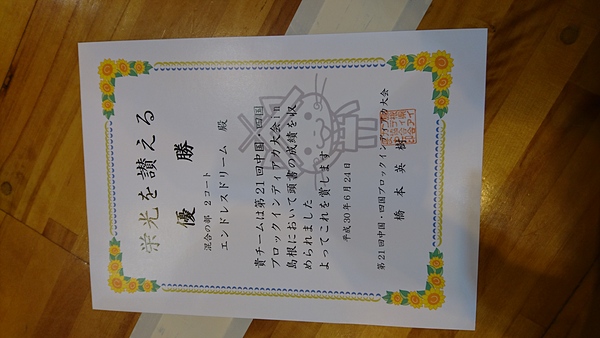 栄光を讃える
優勝
混合の部 2コート
エンドレスドリーム 殿
貴チームは第21回中国・四国
ブロックインディアカ大会in
島根において頭書の成績を収
められました
よってこれを賞します
平成30年6月24日
第21回中国・四国ブロックインディアカ大会
橋本英樹